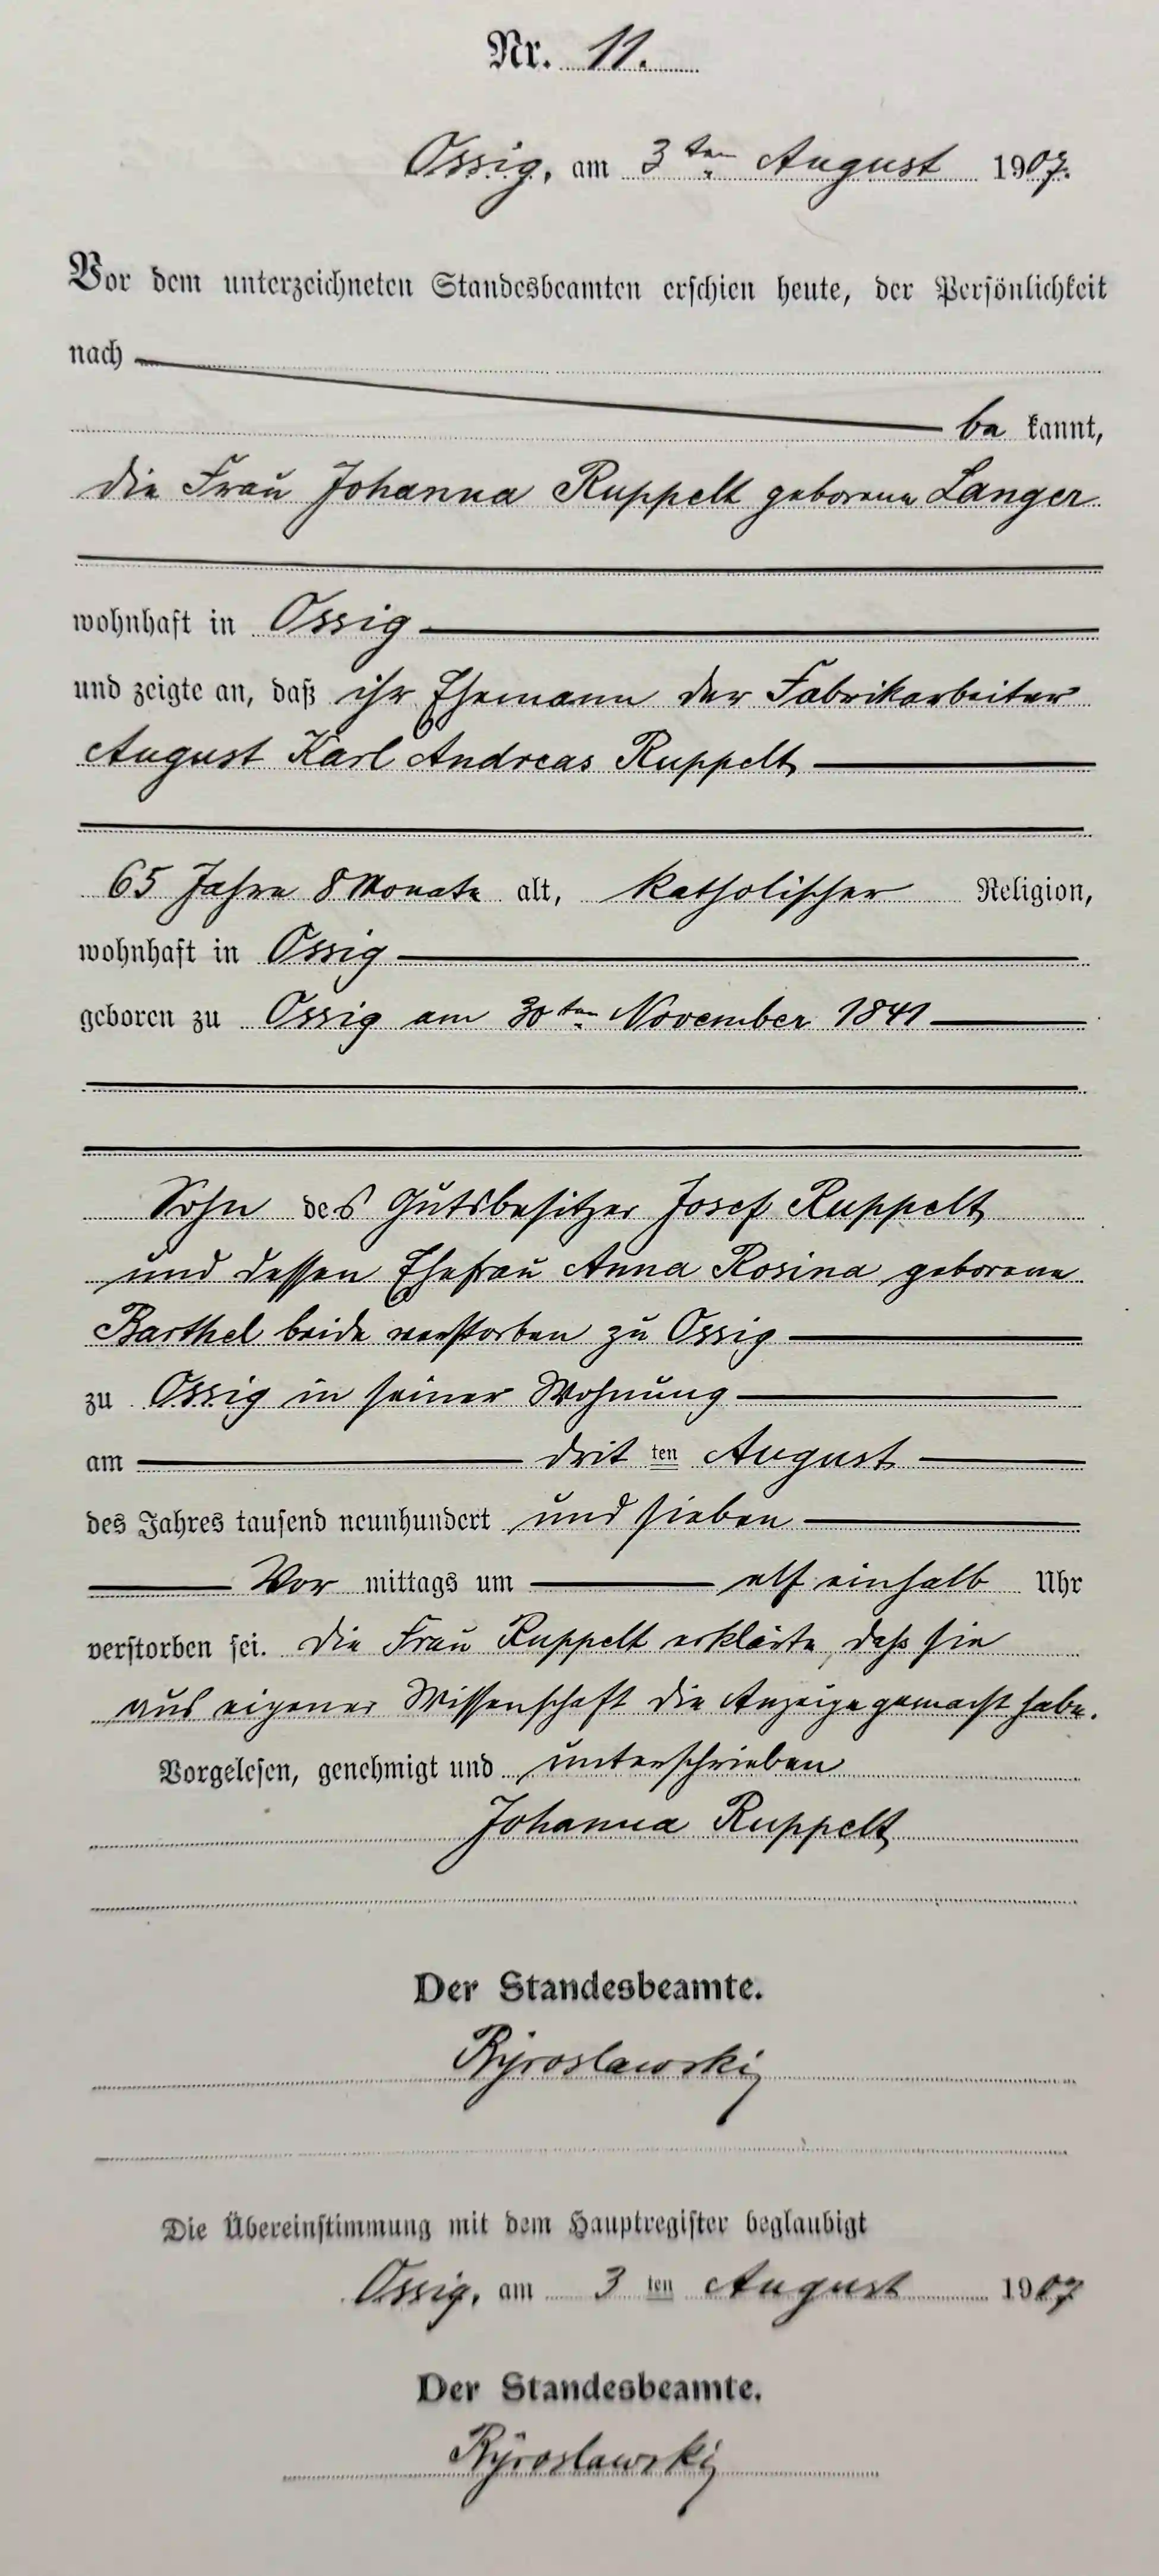 Nr. 11.
Ossig, am 3ten August 1907.
Vor dem unterzeichneten Standesbeamten erschien heute, der Persönlichkeit
nach
be kannt,
die Frau Johanna Ruppelt geborene Langer
wohnhaft in Ossig
und zeigte an, daß ihr Ehemann der Fabrikarbeiter
August Karl Andreas Ruppelt
65 Jahre 8 Monate alt, katholischer Religion,
wohnhaft in Ossig
geboren zu Ossig am 30ten November 1841
Sohn des Gutsbesitzer Josef Ruppelt
und dessen Ehefrau Anna Rosina geborene
Barthel beide verstorben zu Ossig
zu Ossig in seiner Wohnung
am drit ten August
des Jahres tausend neunhundert und sieben
Vor mittags um elf einhalb Uhr
verstorben sei. Die Frau Ruppelt erklärte, daß sie
aus eigener Wissenschaft die Anzeige gemacht habe.
Vorgelesen, genehmigt und unterschrieben
Johanna Ruppelt
Der Standesbeamte.
Die Übereinstimmung mit dem Hauptregister beglaubigt
Ossig, am 3 ten August 1907
Der Standesbeamte.